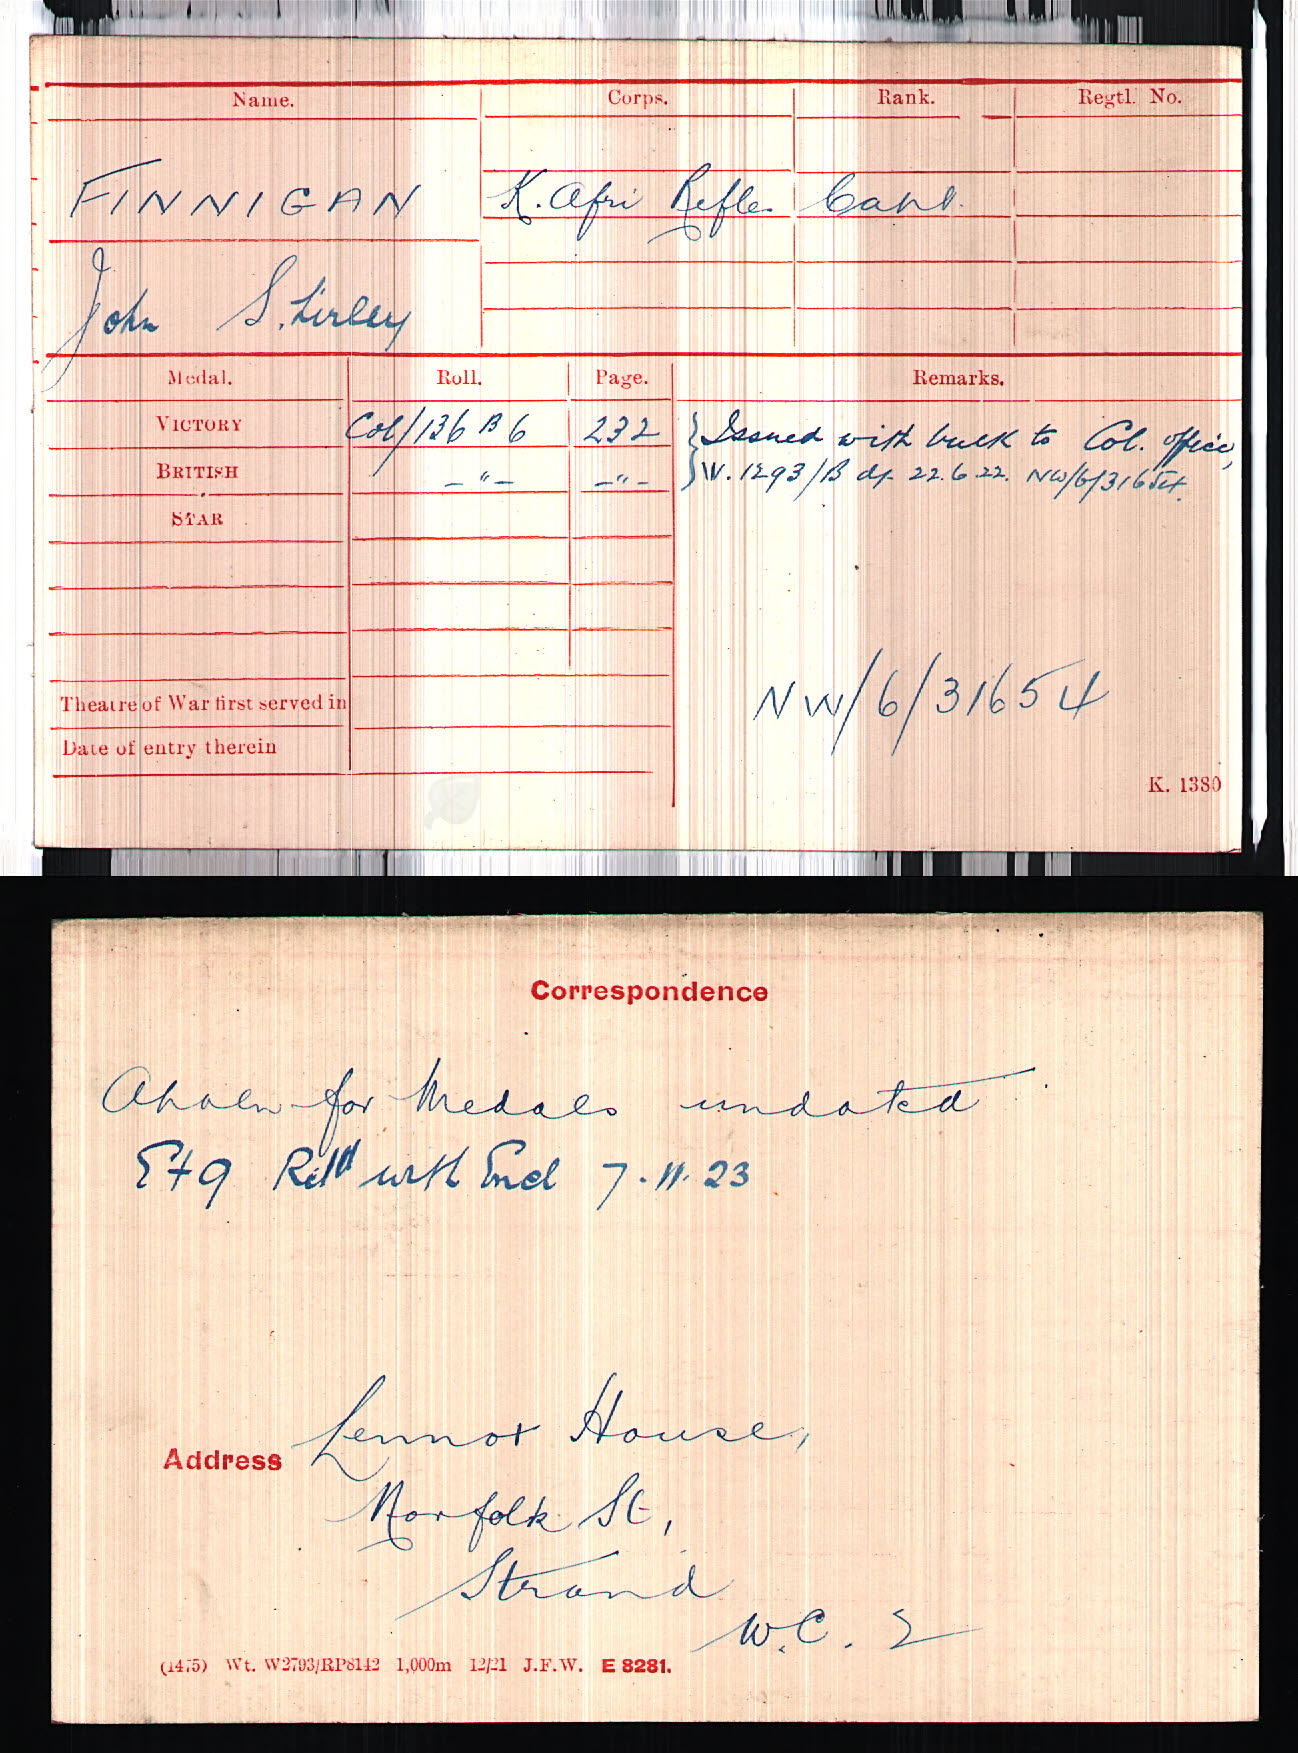 Name. Corps. Rank. Regtl. No.
FINNIGAN K. Afri Rifle. Capt.
John S.hirley
Medal. Roll. Page. Remarks.
VICTORY Col/136 B 6 232 Issued with bulk to Col. office,
BRITISH —"— —"— W. 1293/B df. 22.6.22. NW/6/31654.
STAR
NW/6/31654
Theatre of War first served in
Date of entry therein
K. 1380
Correspondence
for Medals undated
Retd with Encl 7.11.23
Address Lennox House,
Norfolk St,
Strand
W.C. 2
(1475) Wt. W2793/RP8142 1,000m 12/21 J.F.W. E 8281.